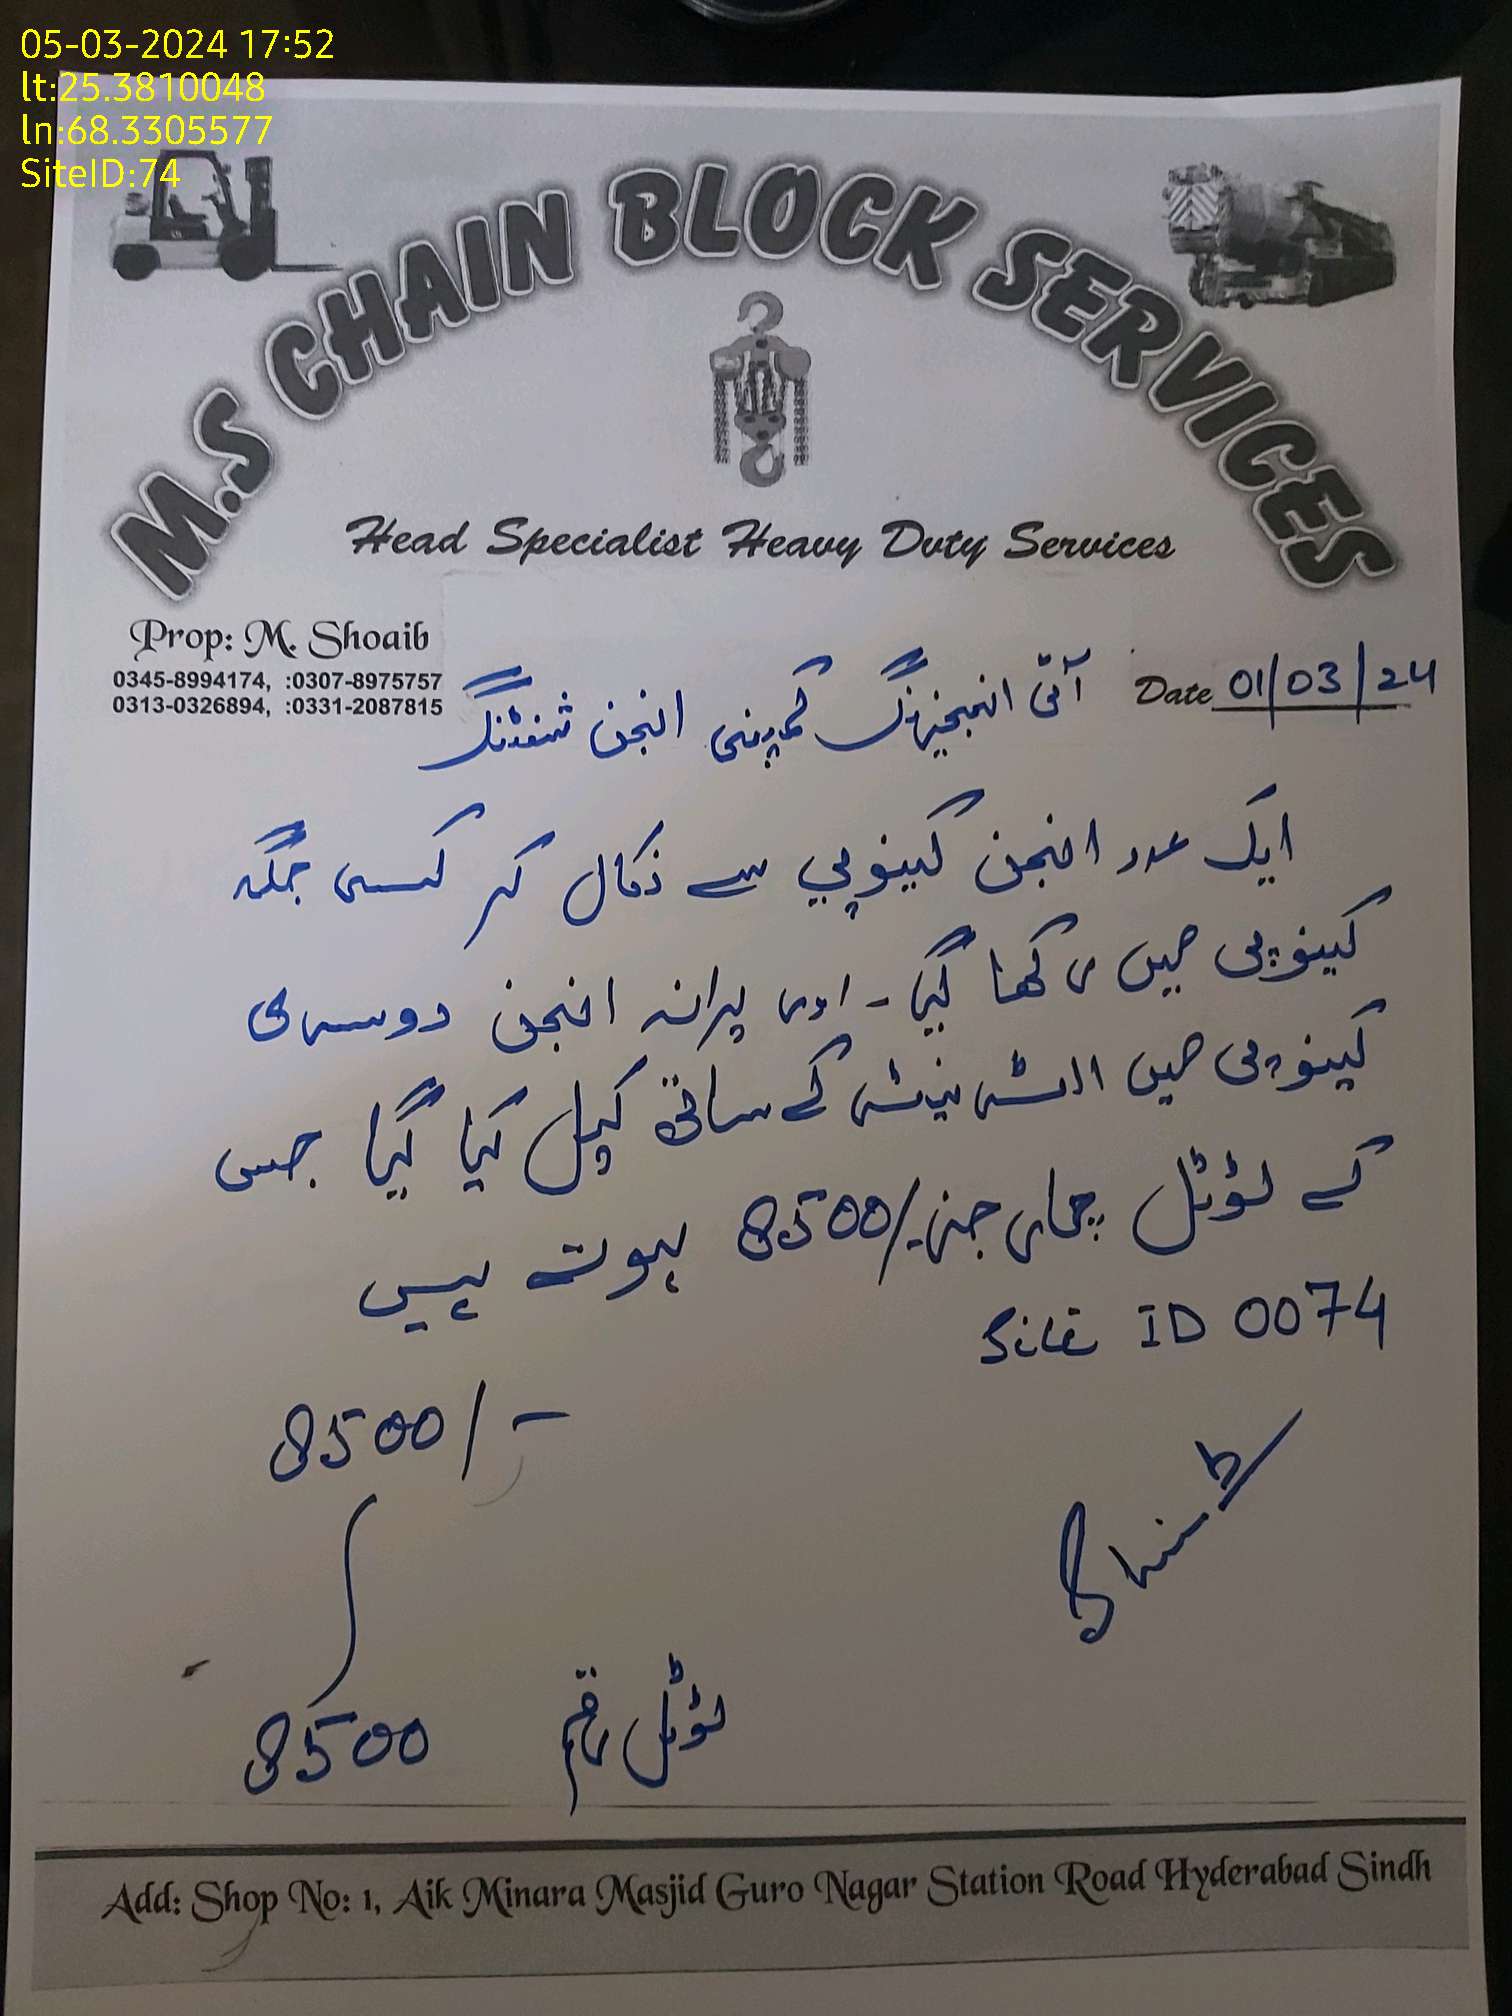 05-03-2024 17:52
lt:25.3810048
ln:68.3305577
SiteID:74
M.S CHAIN BLOCK SERVICES
Head Specialist Heavy Duty Services
Prop: M. Shoaib
0345-8994174, :0307-8975757
0313-0326894, :0331-2087815
Date 01/03/24
آئی انجینئرنگ کمپنی انجن شفٹنگ
ایک عدد انجن کینوپی سے نکال کر کسی جگہ
کینوپی میں رکھا گیا۔ اور پرانہ انجن دوسری
کینوپی میں الٹرنیٹر کے ساتھ کپل کیا گیا جس
کے ٹوٹل چارجز 8500/- ہوتے ہیں
Site ID 0074
8500/-
8500 ٹوٹل رقم
Add: Shop No: 1, Aik Minara Masjid Guro Nagar Station Road Hyderabad Sindh